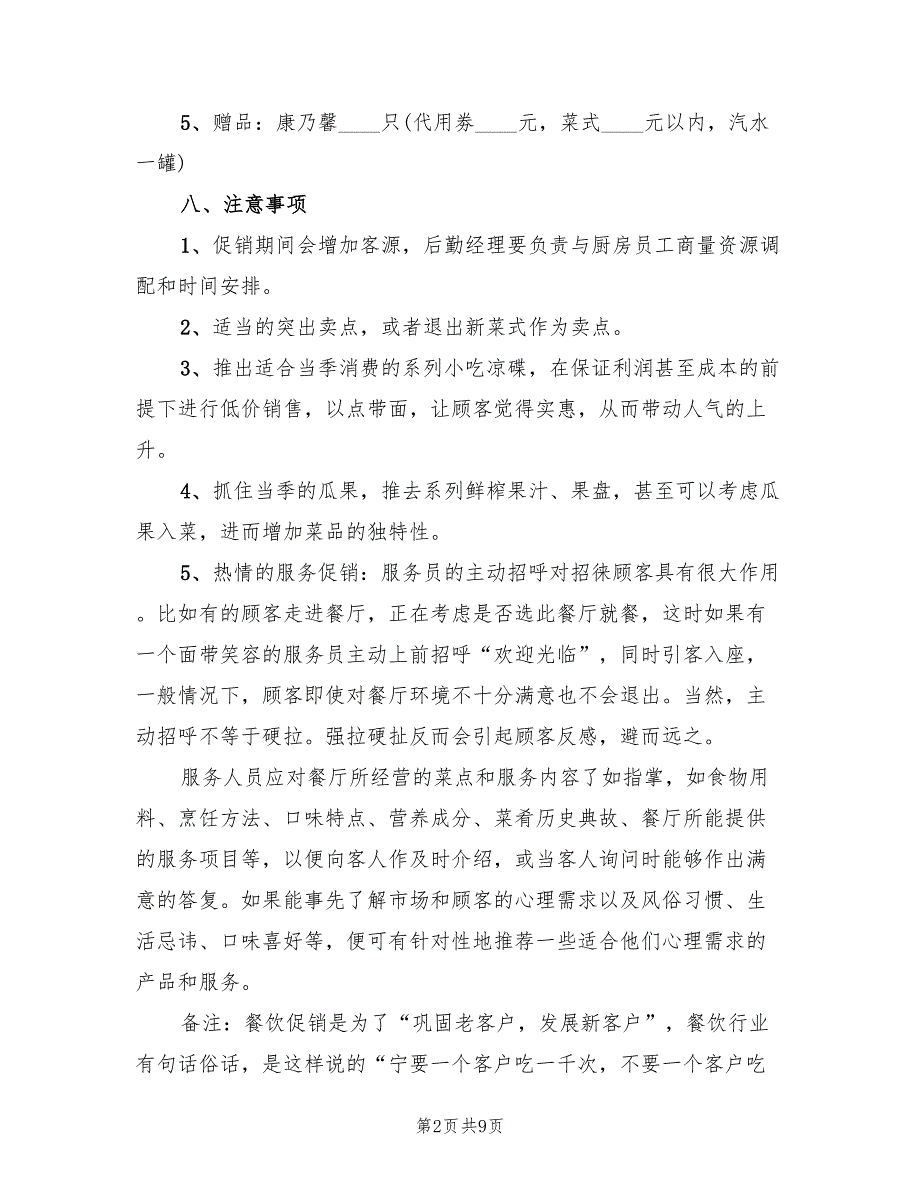 5、赠品：康乃馨____只(代用券____元，菜式____元以内，汽水
一罐)
八、注意事项
1、促销期间会增加客源，后勤经理要负责与厨房员工商量资源调
配和时间安排。
2、适当的突出卖点，或者退出新菜式作为卖点。
3、推出适合当季消费的系列小吃凉碟，在保证利润甚至成本的前
提下进行低价销售，以点带面，让顾客觉得实惠，从而带动人气的上
升。
4、抓住当季的瓜果，推去系列鲜榨果汁、果盘，甚至可以考虑瓜
果入菜，进而增加菜品的独特性。
5、热情的服务促销：服务员的主动招呼对招徕顾客具有很大作用
。比如有的顾客走进餐厅，正在考虑是否选此餐厅就餐，这时如果有
一个面带笑容的服务员主动上前招呼“欢迎光临”，同时引客入座，
一般情况下，顾客即使对餐厅环境不十分满意也不会退出。当然，主
动招呼不等于硬拉。强拉硬扯反而会引起顾客反感，避而远之。
服务人员应对餐厅所经营的菜点和服务内容了如指掌，如食物用
料、烹饪方法、口味特点、营养成分、菜肴历史典故、餐厅所能提供
的服务项目等，以便向客人作及时介绍，或当客人询问时能够作出满
意的答复。如果能事先了解市场和顾客的心理需求以及风俗习惯、生
活忌讳、口味喜好等，便可有针对性地推荐一些适合他们心理需求的
产品和服务。
备注：餐饮促销是为了“巩固老客户，发展新客户”，餐饮行业
有句话俗话，是这样说的“宁要一个客户吃一千次，不要一个客户吃
第2页 共9页